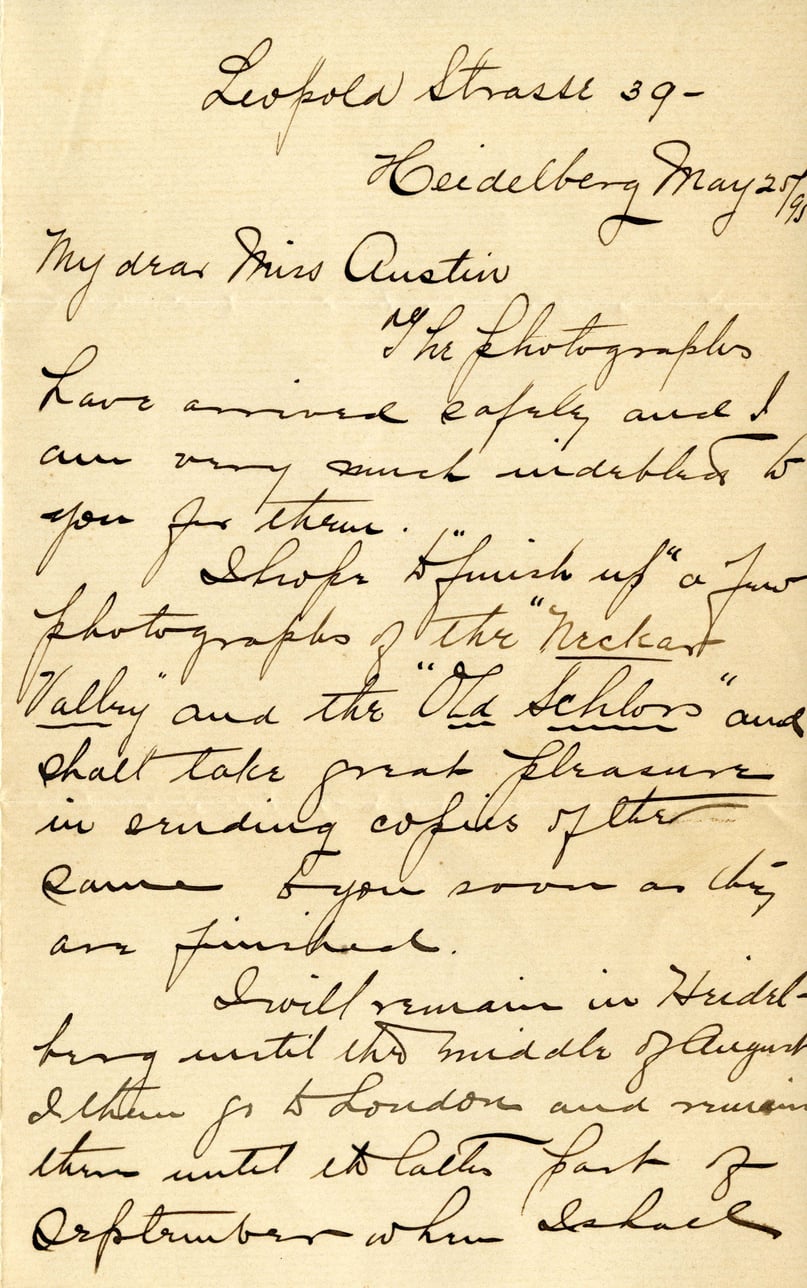 Leopold Strasse 39-
Heidelberg May 25/95
My dear Miss Austin
The photographs
have arrived safely and I
am very much indebted to
you for them.
I hope to "finish up" a few
photographs of the "Neckar
Valley" and the "Old Schloss" and
shall take great pleasure
in sending copies of the
same to you soon as they
are finished.
I will remain in Heidel-
berg until the middle of August
I then go to London and remain
there until the latter part of
September when I shall